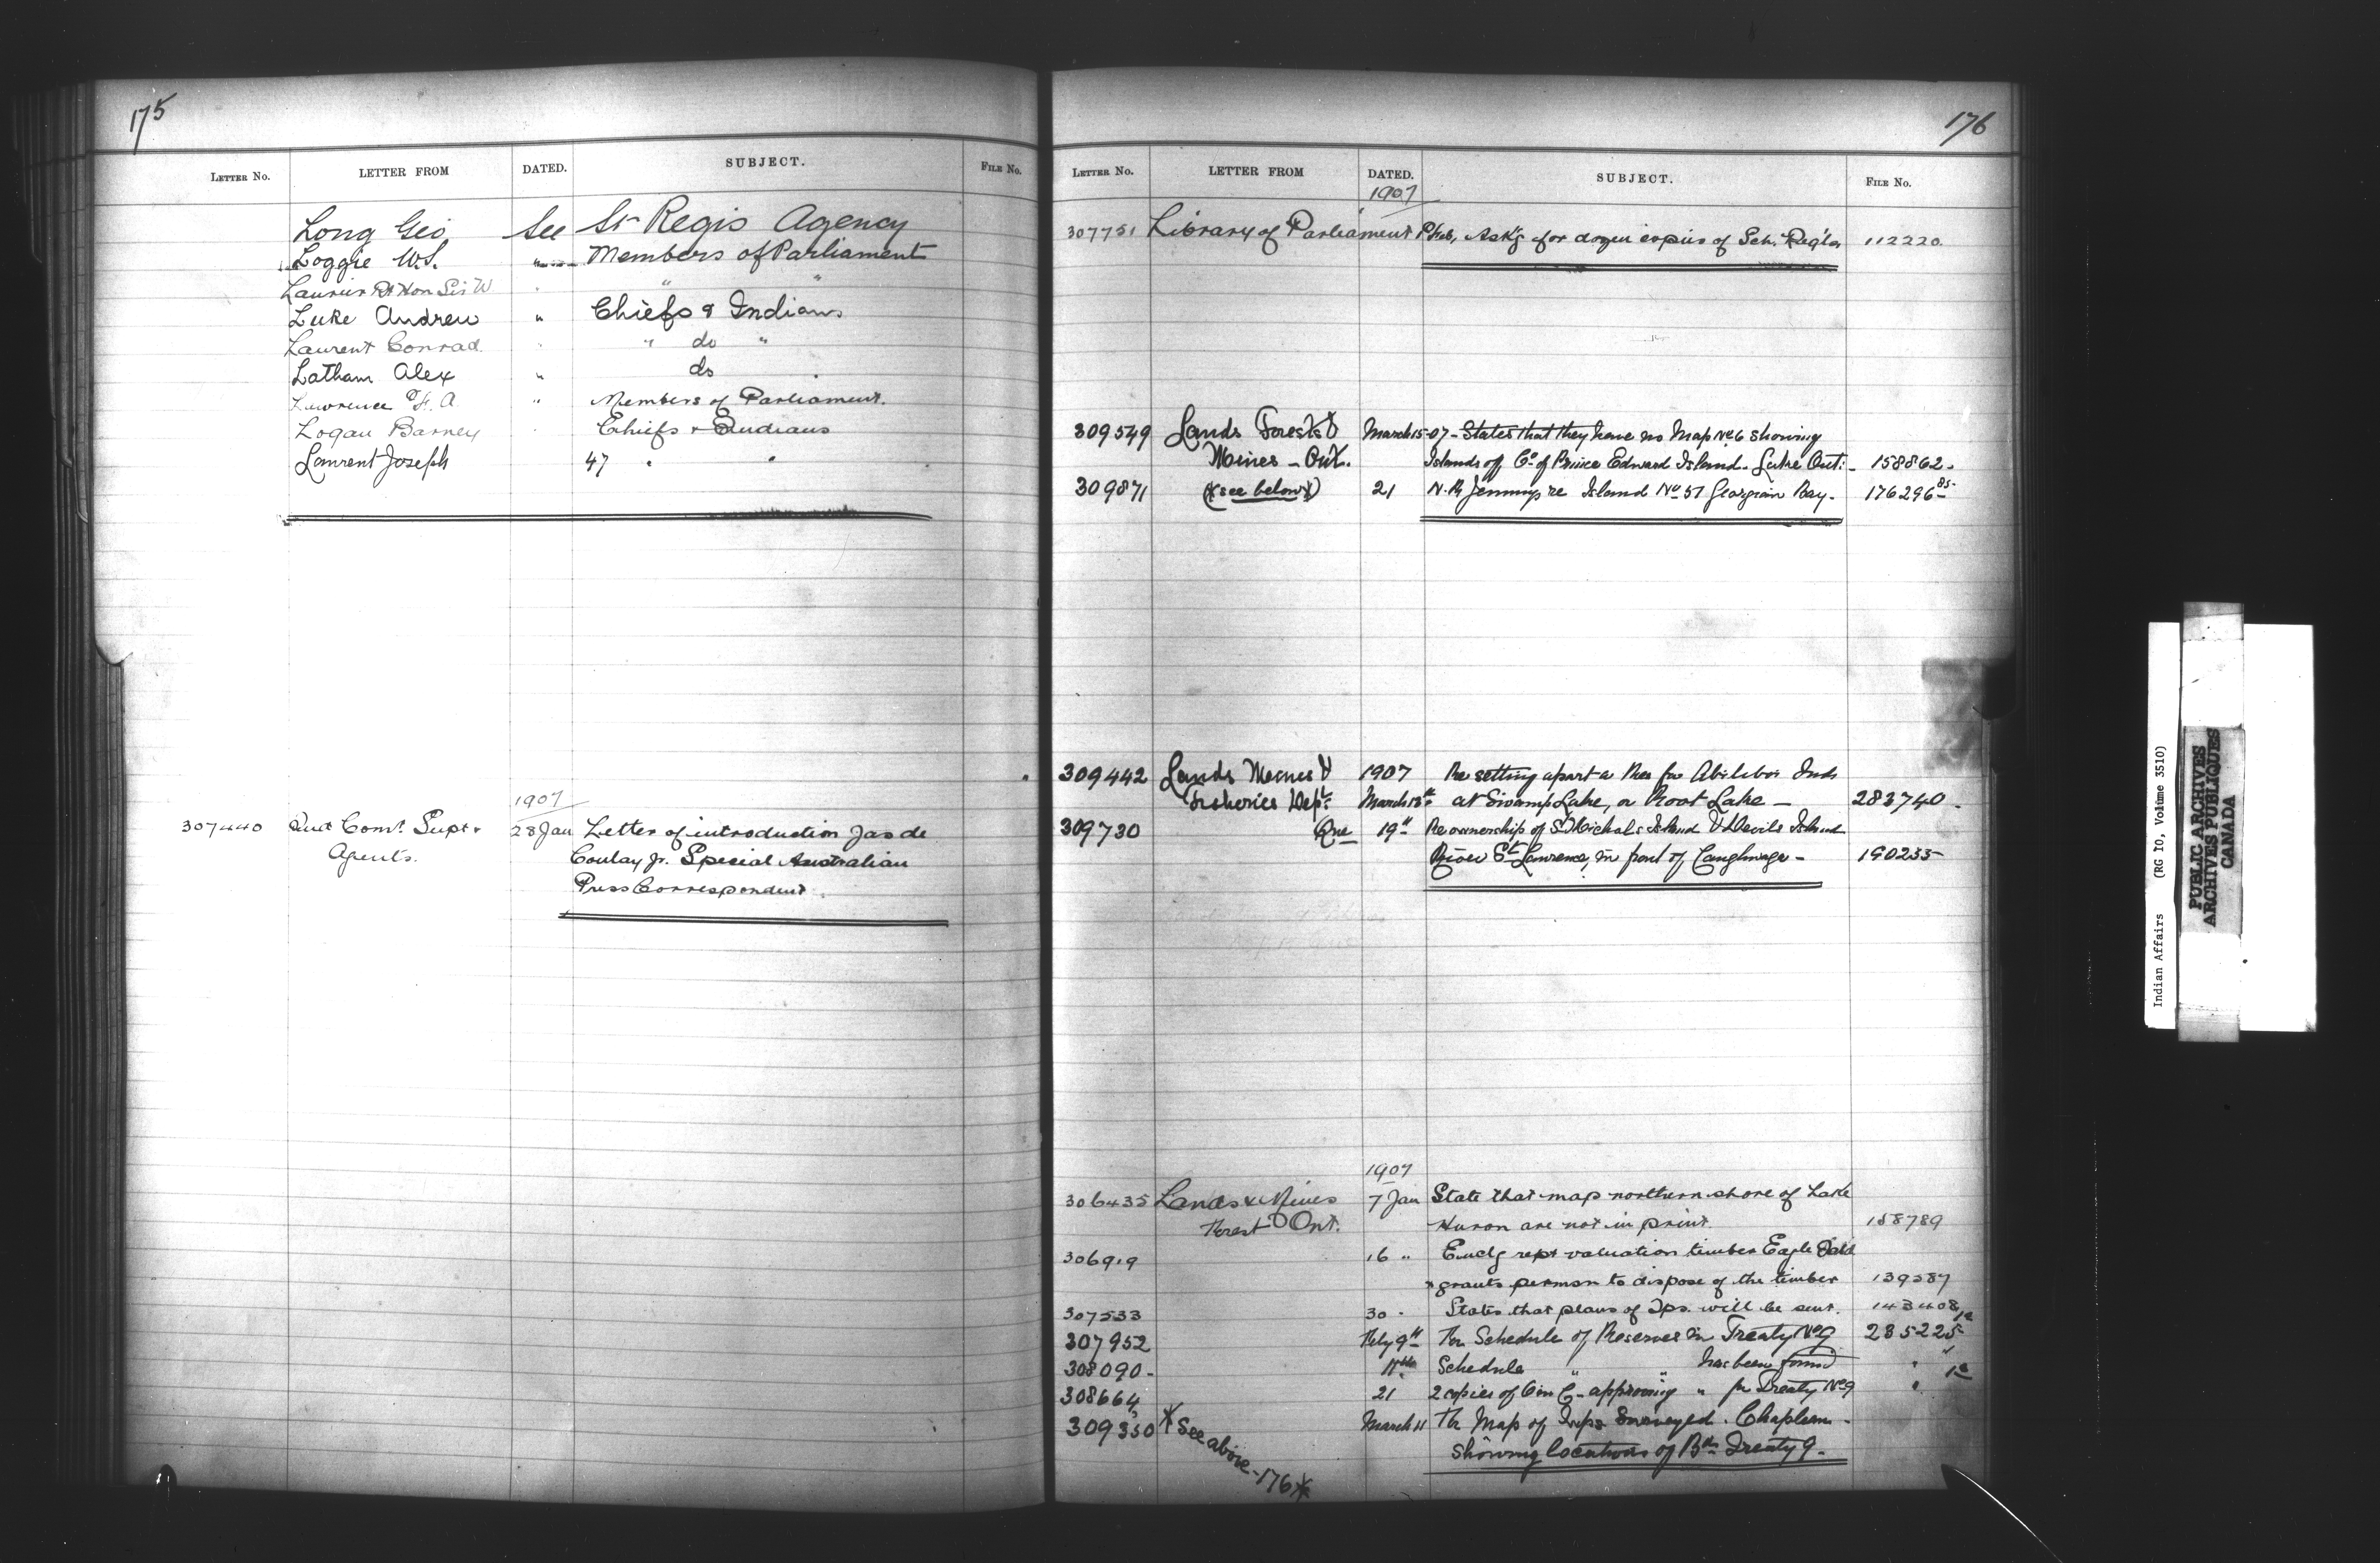 175
LETTER No. LETTER FROM DATED. SUBJECT. FILE No.
Long Geo See St Regis Agency
Loggie W.S. " Members of Parliament
Laurier Rt Hon Sir W " " "
Luke Andrew " Chiefs & Indians
Laurent Conrad " " do "
Latham Alex " do
Lawrence F. A. " Members of Parliament.
Logan Barney " Chiefs & Indians
Laurent Joseph 47 " "
1907
307440 Com. Supt & 28 Jan Letter of introduction Jas de
Agents. Coulay Jr. Special Australian
Press Correspondent.
176
LETTER No. LETTER FROM DATED. SUBJECT. FILE No.
1907
307751 Library of Parliament Feb, Ask'g for dozen copies of Sch. Reg'ls 112220.
309549 Lands Forests & March 15-07- States that they have no Map No 6 showing
Mines - Ont. Islands off Co. of Prince Edward Island. Lake Ont:- 158862.
309871 (* see below *) 21 re Island No 57 Georgian Bay. 176296-85-
309442 Lands Mines & 1907 Re setting apart a Res for Abitibi Inds
Fisheries Dept. March 18th at Swamp Lake, or Root Lake - 283740.
309730 Que 19th Re ownership of St Michals Island & Devils Island
River St Lawrence, in front of Caughnaga - 190255
1907
306435 Lands & Mines 7 Jan State that map northern shore of Lake
Forest Ont. Huron are not in print. 158789
306919 16 " Encl'g rept valuation timber Eagle
& grants permsn to dispose of the timber 139587
307533 30 . States that plans of Tps. will be sent. 143408
307952 Feby 9th Schedule of Reserves in Treaty No 9 235225-1a
308090- Schedule " " has been found " "
308664 21 2 copies of O in C - approving " for Treaty No 9 " 1a
309350 * See above - 176 * March 11 Map of Twps Surveyed. Chapleau -
showing locations of Bds Treaty 9.
Indian Affairs (RG 10, Volume 3510)
PUBLIC ARCHIVES
ARCHIVES PUBLIQUES
CANADA